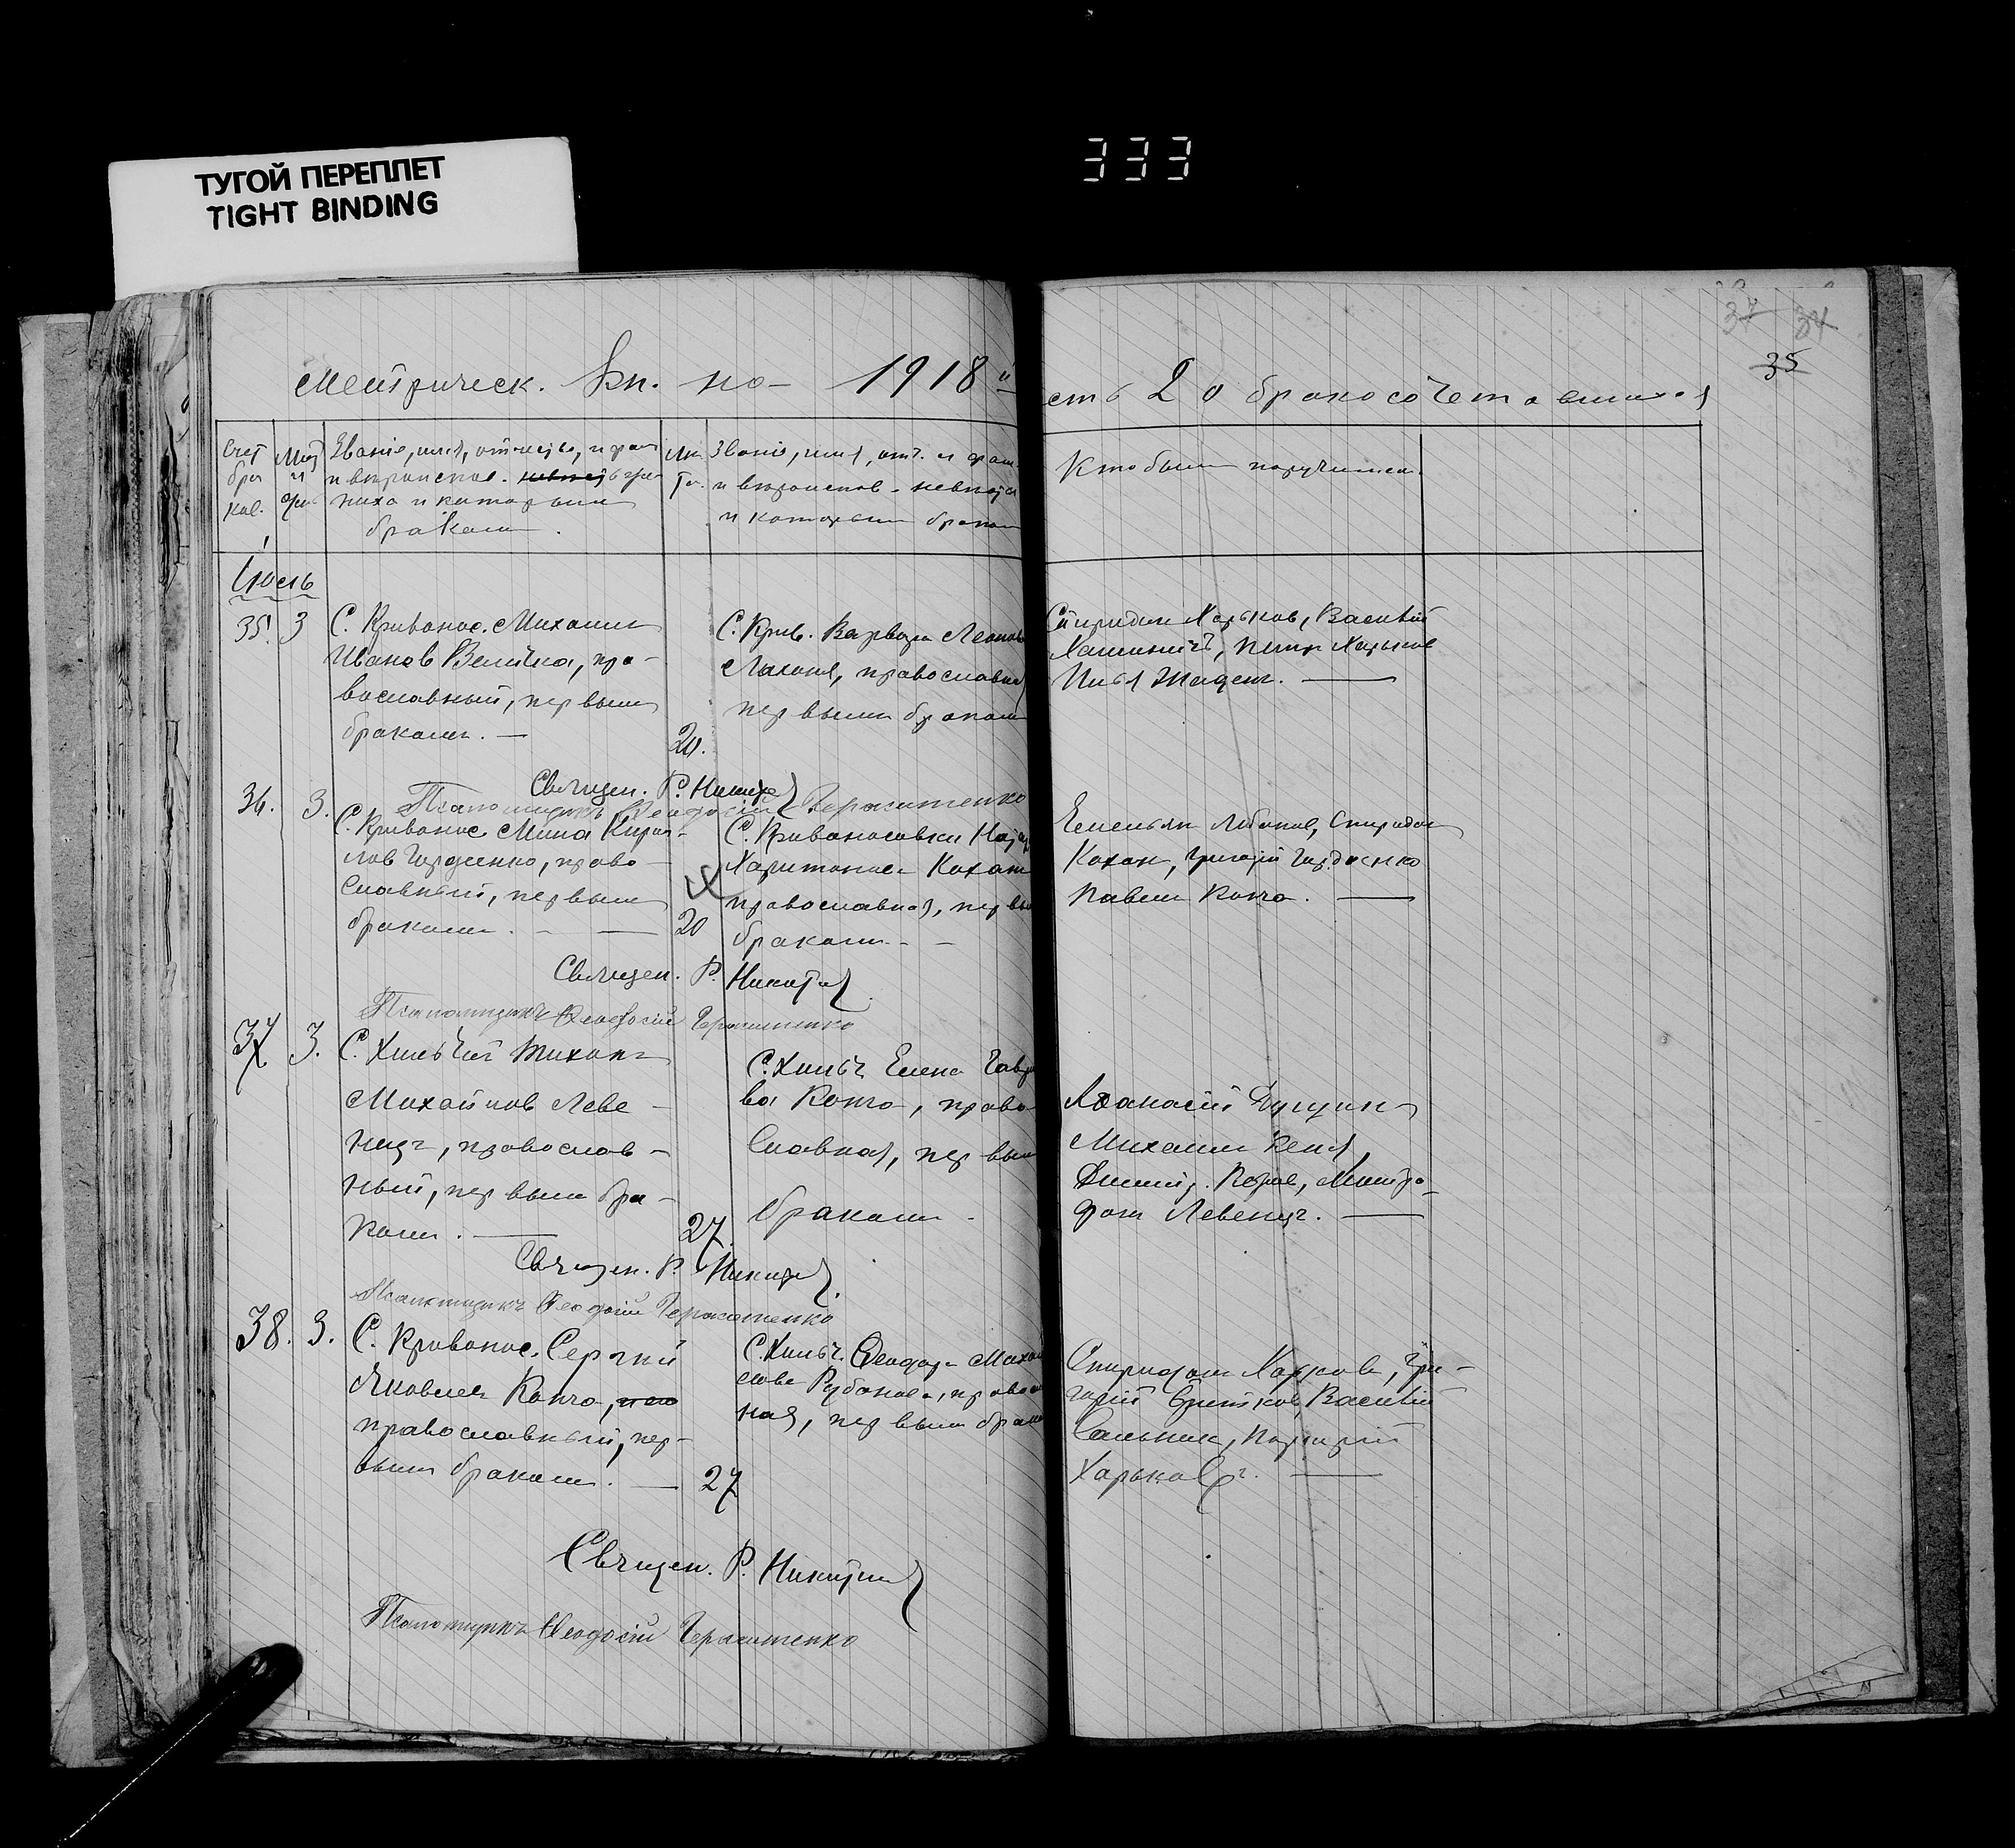 333
ТУГОЙ ПЕРЕПЛЕТ
TIGHT BINDING
37 34
35
Метрическ. Кн. на 1918
сть 2 о бракосочетавшихся
Счет
бра
ков.
Мѣс
и
Званіе, имя, отчество, и фам
и вѣроиспов.
ниха и которым
бракам.
Лѣ
та.
Званіе, имя, отч. и фам.
и вѣроиспов. невѣсты
и которым браком
Кто были поручители.
Іюль
35. 3
С. Кривонос. Михаил
Иванов Величка, пра-
вославный, первым
браком. —
20.
С. Крив. Варвара Леонов
православная
первым браком
Спиридон Харьков, Василій
Петр Харьков
Илья —
Священ. Р. Никит
Псаломщикъ Феодосій Герасименко
36. 3.
С. Кривонос. Мина Кирил-
лов Гордиенко, право-
славный, первым
браком. — —
20
С. Кривоносовки
Харитонова Кохан
православная, первы
браком. —
Емельян Спиридон
Кохан, Григорій Гордиенко
Павел Конча. —
Священ. Р. Никит
Псаломщикъ Феодосій Герасименко
37 3.
С. Хильчич Тихон
Михайлов Леве-
нец, православ-
ный, первым бра-
ком. —
27.
С. Хильч. Елена Гавр
ва Конча, право
славная, первым
браком.
Афанасій
Михаил
Димит. Митро-
фан Левенец. —
Священ. Р. Никит
Псаломщикъ Феодосій Герасименко
38. 3.
С. Кривонос. Сергий
Яковлев Конча,
православный, пер-
вым браком. —
27
С. Хильч. Феодора Михай
лова Рубанова, правосл
ная, первым браком
Спиридон Харьков, Гри-
горій Василій
Сальник,
Харьков. —
Священ. Р. Никит
Псаломщикъ Феодосій Герасименко